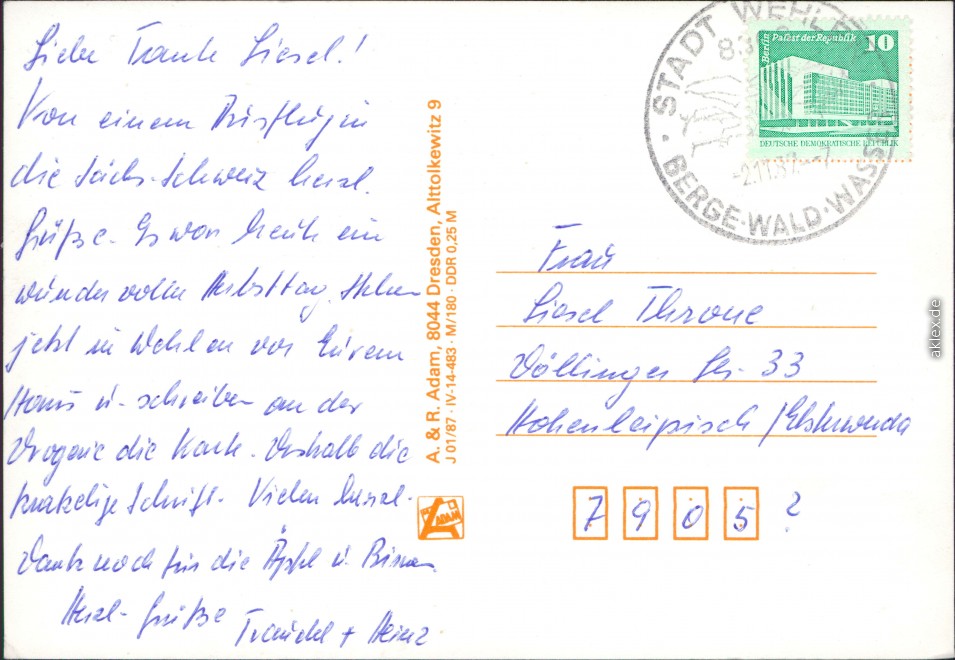 Liebe Tante Liesel!
Von einem Ausflug in
die Sächs. Schweiz herzl.
Grüße. Es war heute ein
wundervoller Herbsttag. Stehen
jetzt in Wehlen vor Eurem
Haus u. schreiben an der
Drogerie die Karte. Deshalb die
krakelige Schrift. Vielen herzl.
Dank noch für die Äpfel u. Birnen.
Herzl. Grüße Traudel + Heinz
A. & R. Adam, 8044 Dresden, Alttolkewitz 9
J 01/87 · IV-14-483 · M/180 · DDR 0,25 M
ADAM
STADT WEHLEN
BERGE·WALD·WASSER
Berlin Palast der Republik 10
DEUTSCHE DEMOKRATISCHE REPUBLIK
Frau
Liesel Throne
Döllinger Str. 33
Hohenleipisch/Elsterwerda
7905?
aklex.de